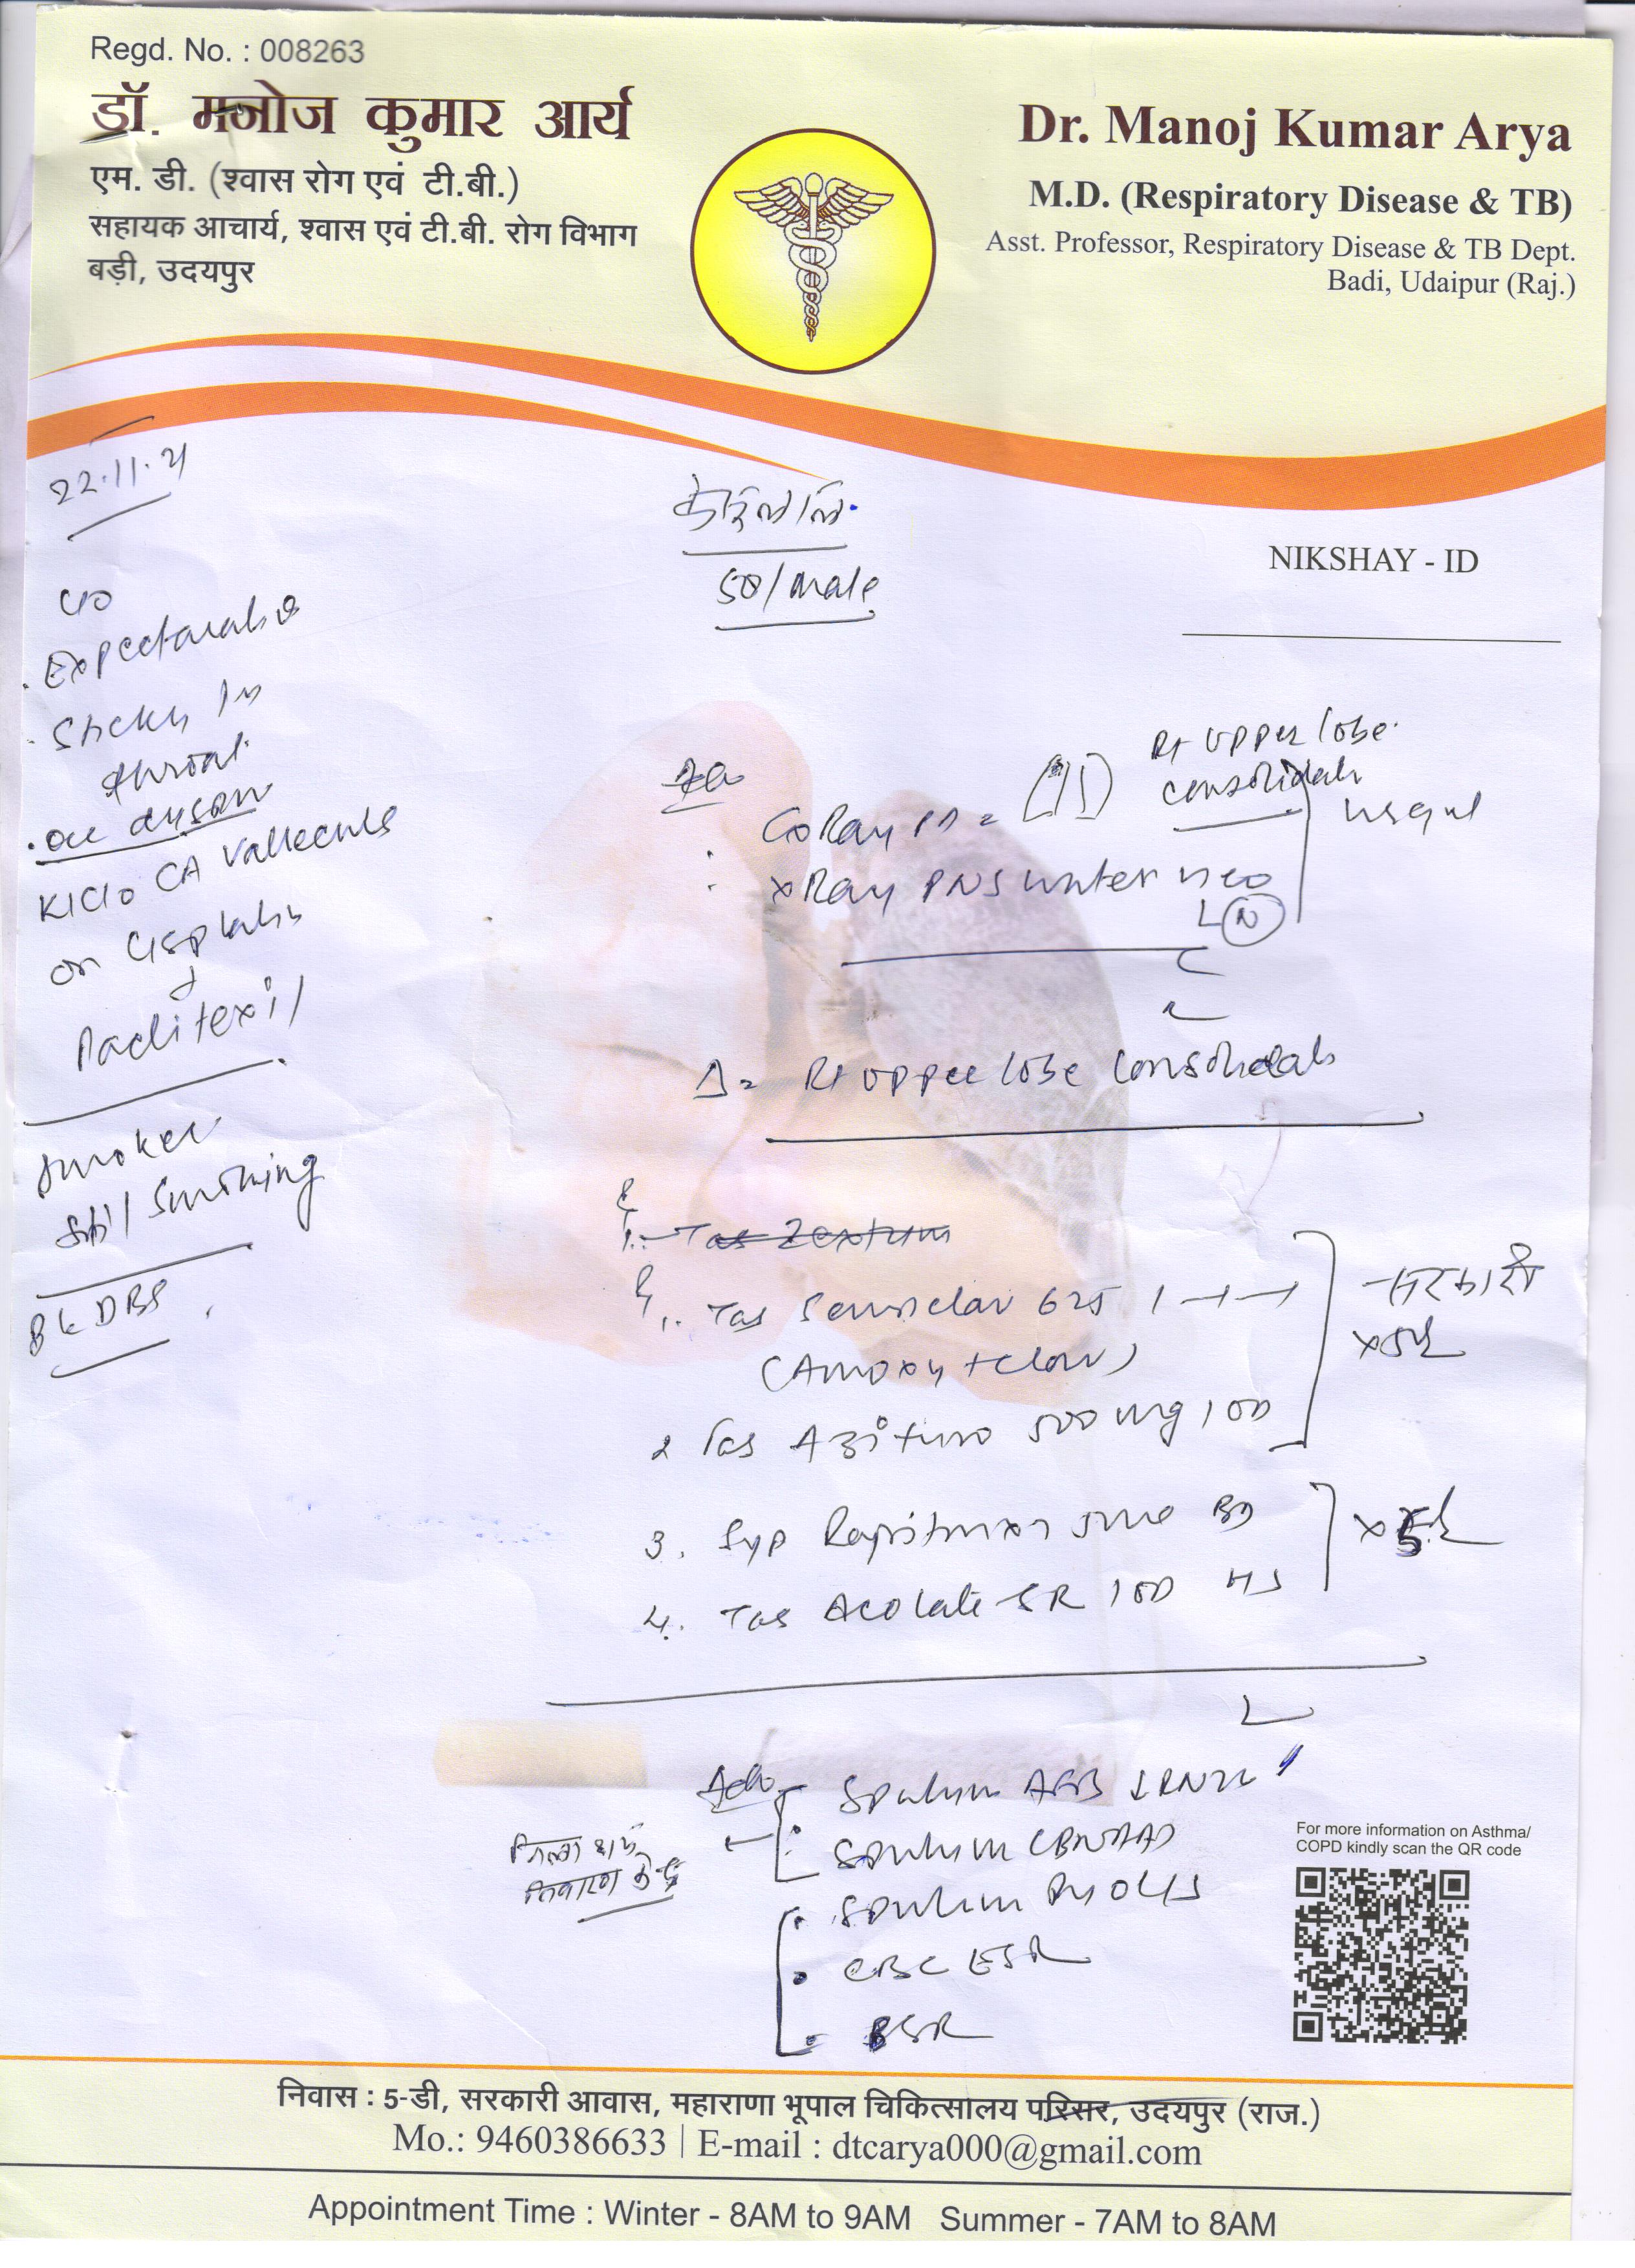 Regd. No. : 008263
डॉ. मनोज कुमार आर्य
एम. डी. (श्वास रोग एवं टी.बी.)
सहायक आचार्य, श्वास एवं टी.बी. रोग विभाग
बड़ी, उदयपुर
Dr. Manoj Kumar Arya
M.D. (Respiratory Disease & TB)
Asst. Professor, Respiratory Disease & TB Dept.
Badi, Udaipur (Raj.)
22.11.21
50/male
NIKSHAY - ID
c/o
. Expectoration
. Sticky in
throat
. occ
K/C/o CA Vallecula
on Cisplatin
+
Smoker
still smoking
Rt Upper lobe
consolidation
xRay PNS water
N
Δ= Rt upper lobe Consolidation
1. Tab
1. Tab 625 1-1-1
(Amoxy + clav)
2 Tab Azithro 500 mg 1 OD
सरकारी
3. Syp 5ml BD
4. Tab Acolate SR 100 HS
Adv
Sputum AFB
Sputum CBNAAT
जिला क्षय
निवारण केंद्र
Sputum Py O C/S
. CBC ESR
For more information on Asthma/
COPD kindly scan the QR code
निवास : 5-डी, सरकारी आवास, महाराणा भूपाल चिकित्सालय परिसर, उदयपुर (राज.)
Mo.: 9460386633 | E-mail : dtcarya000@gmail.com
Appointment Time : Winter - 8AM to 9AM Summer - 7AM to 8AM